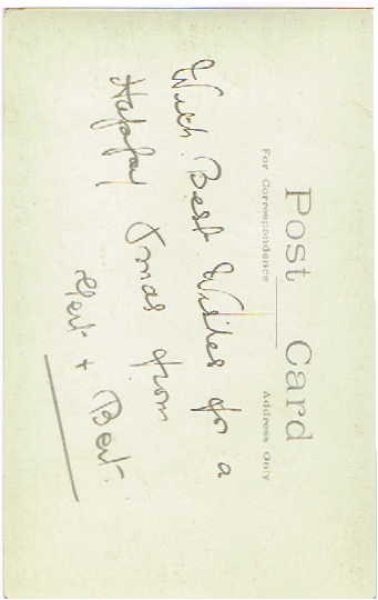 Post Card
For Correspondence
Address Only
With Best Wishes for a
Happy Xmas from
Gert + Bert.